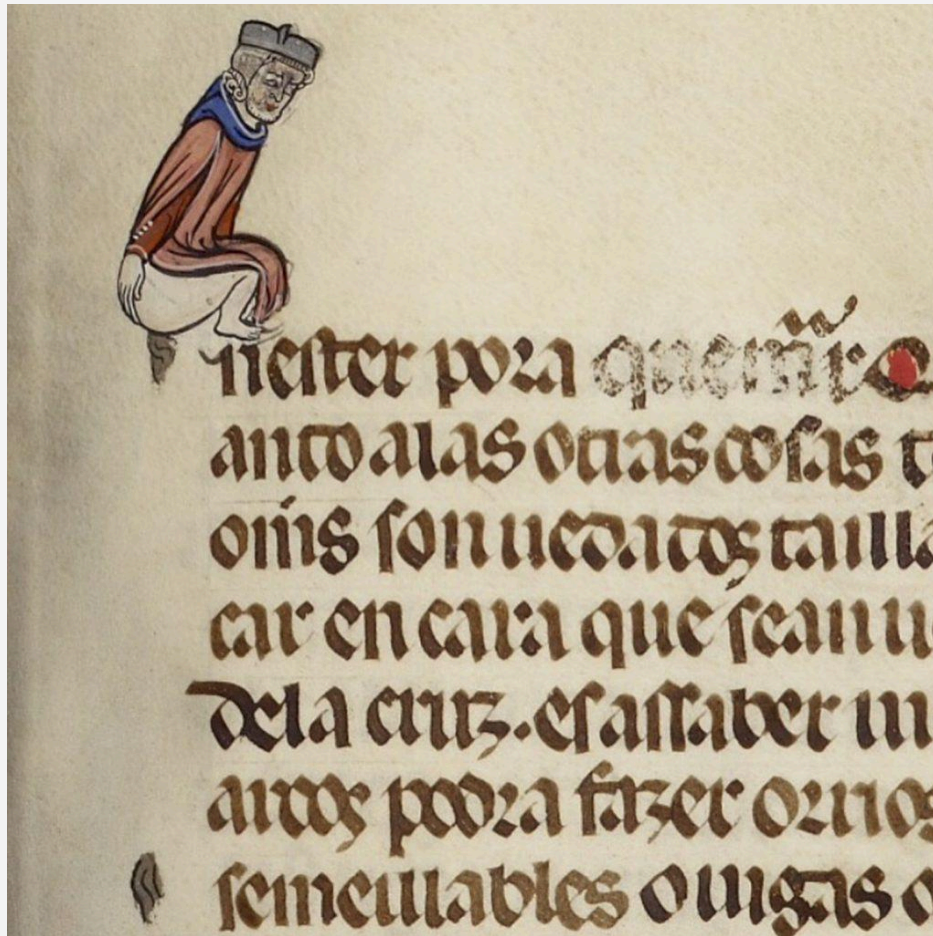 niester pora quemar Q
anto alas otras cosas t
om̅s son uedados tailla
car en cara que sean u
dela cruz. es assaber in
arcos podra fazer orrios
semeillables o uigas o